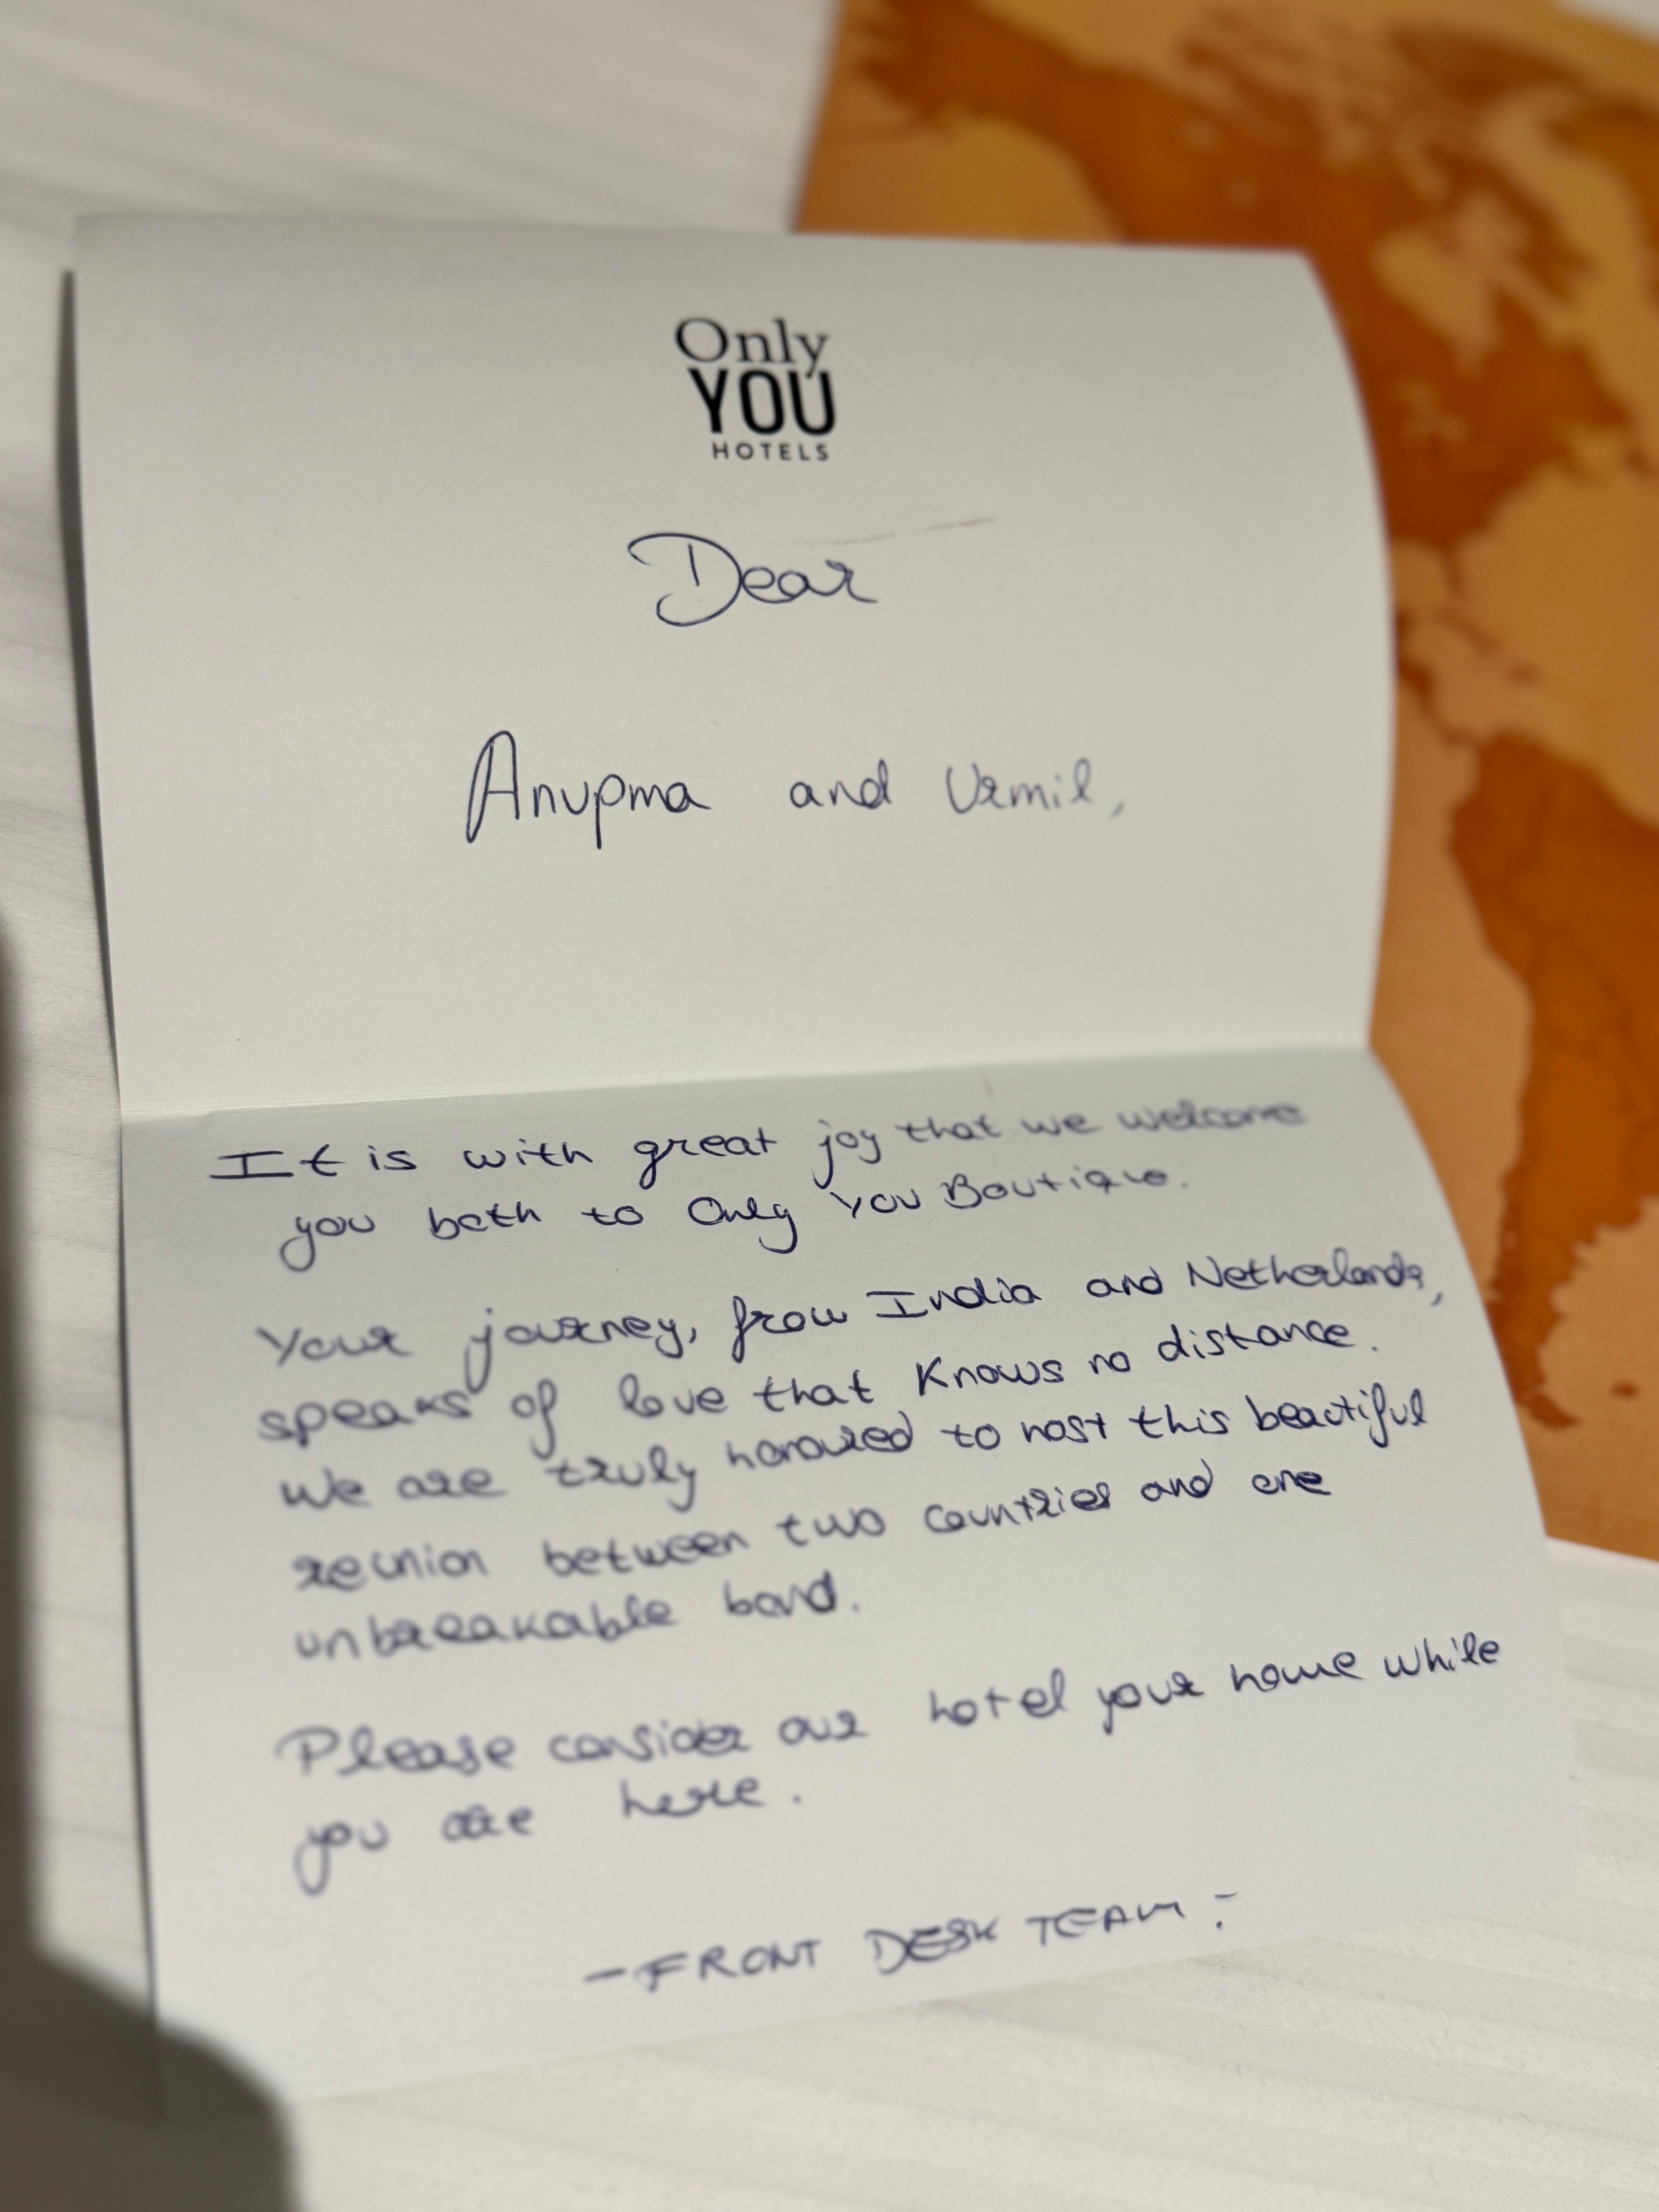 Only
YOU
HOTELS
Dear
Anupma and Urmil,
It is with great joy that we welcome
you both to Only You Boutique.
Your journey, from India and Netherlands,
speaks of love that knows no distance.
We are truly honoured to host this beautiful
reunion between two countries and one
unbreakable bond.
Please consider our hotel your home while
you are here.
-FRONT DESK TEAM :-